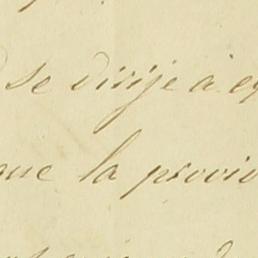 se dirije à
que la provi